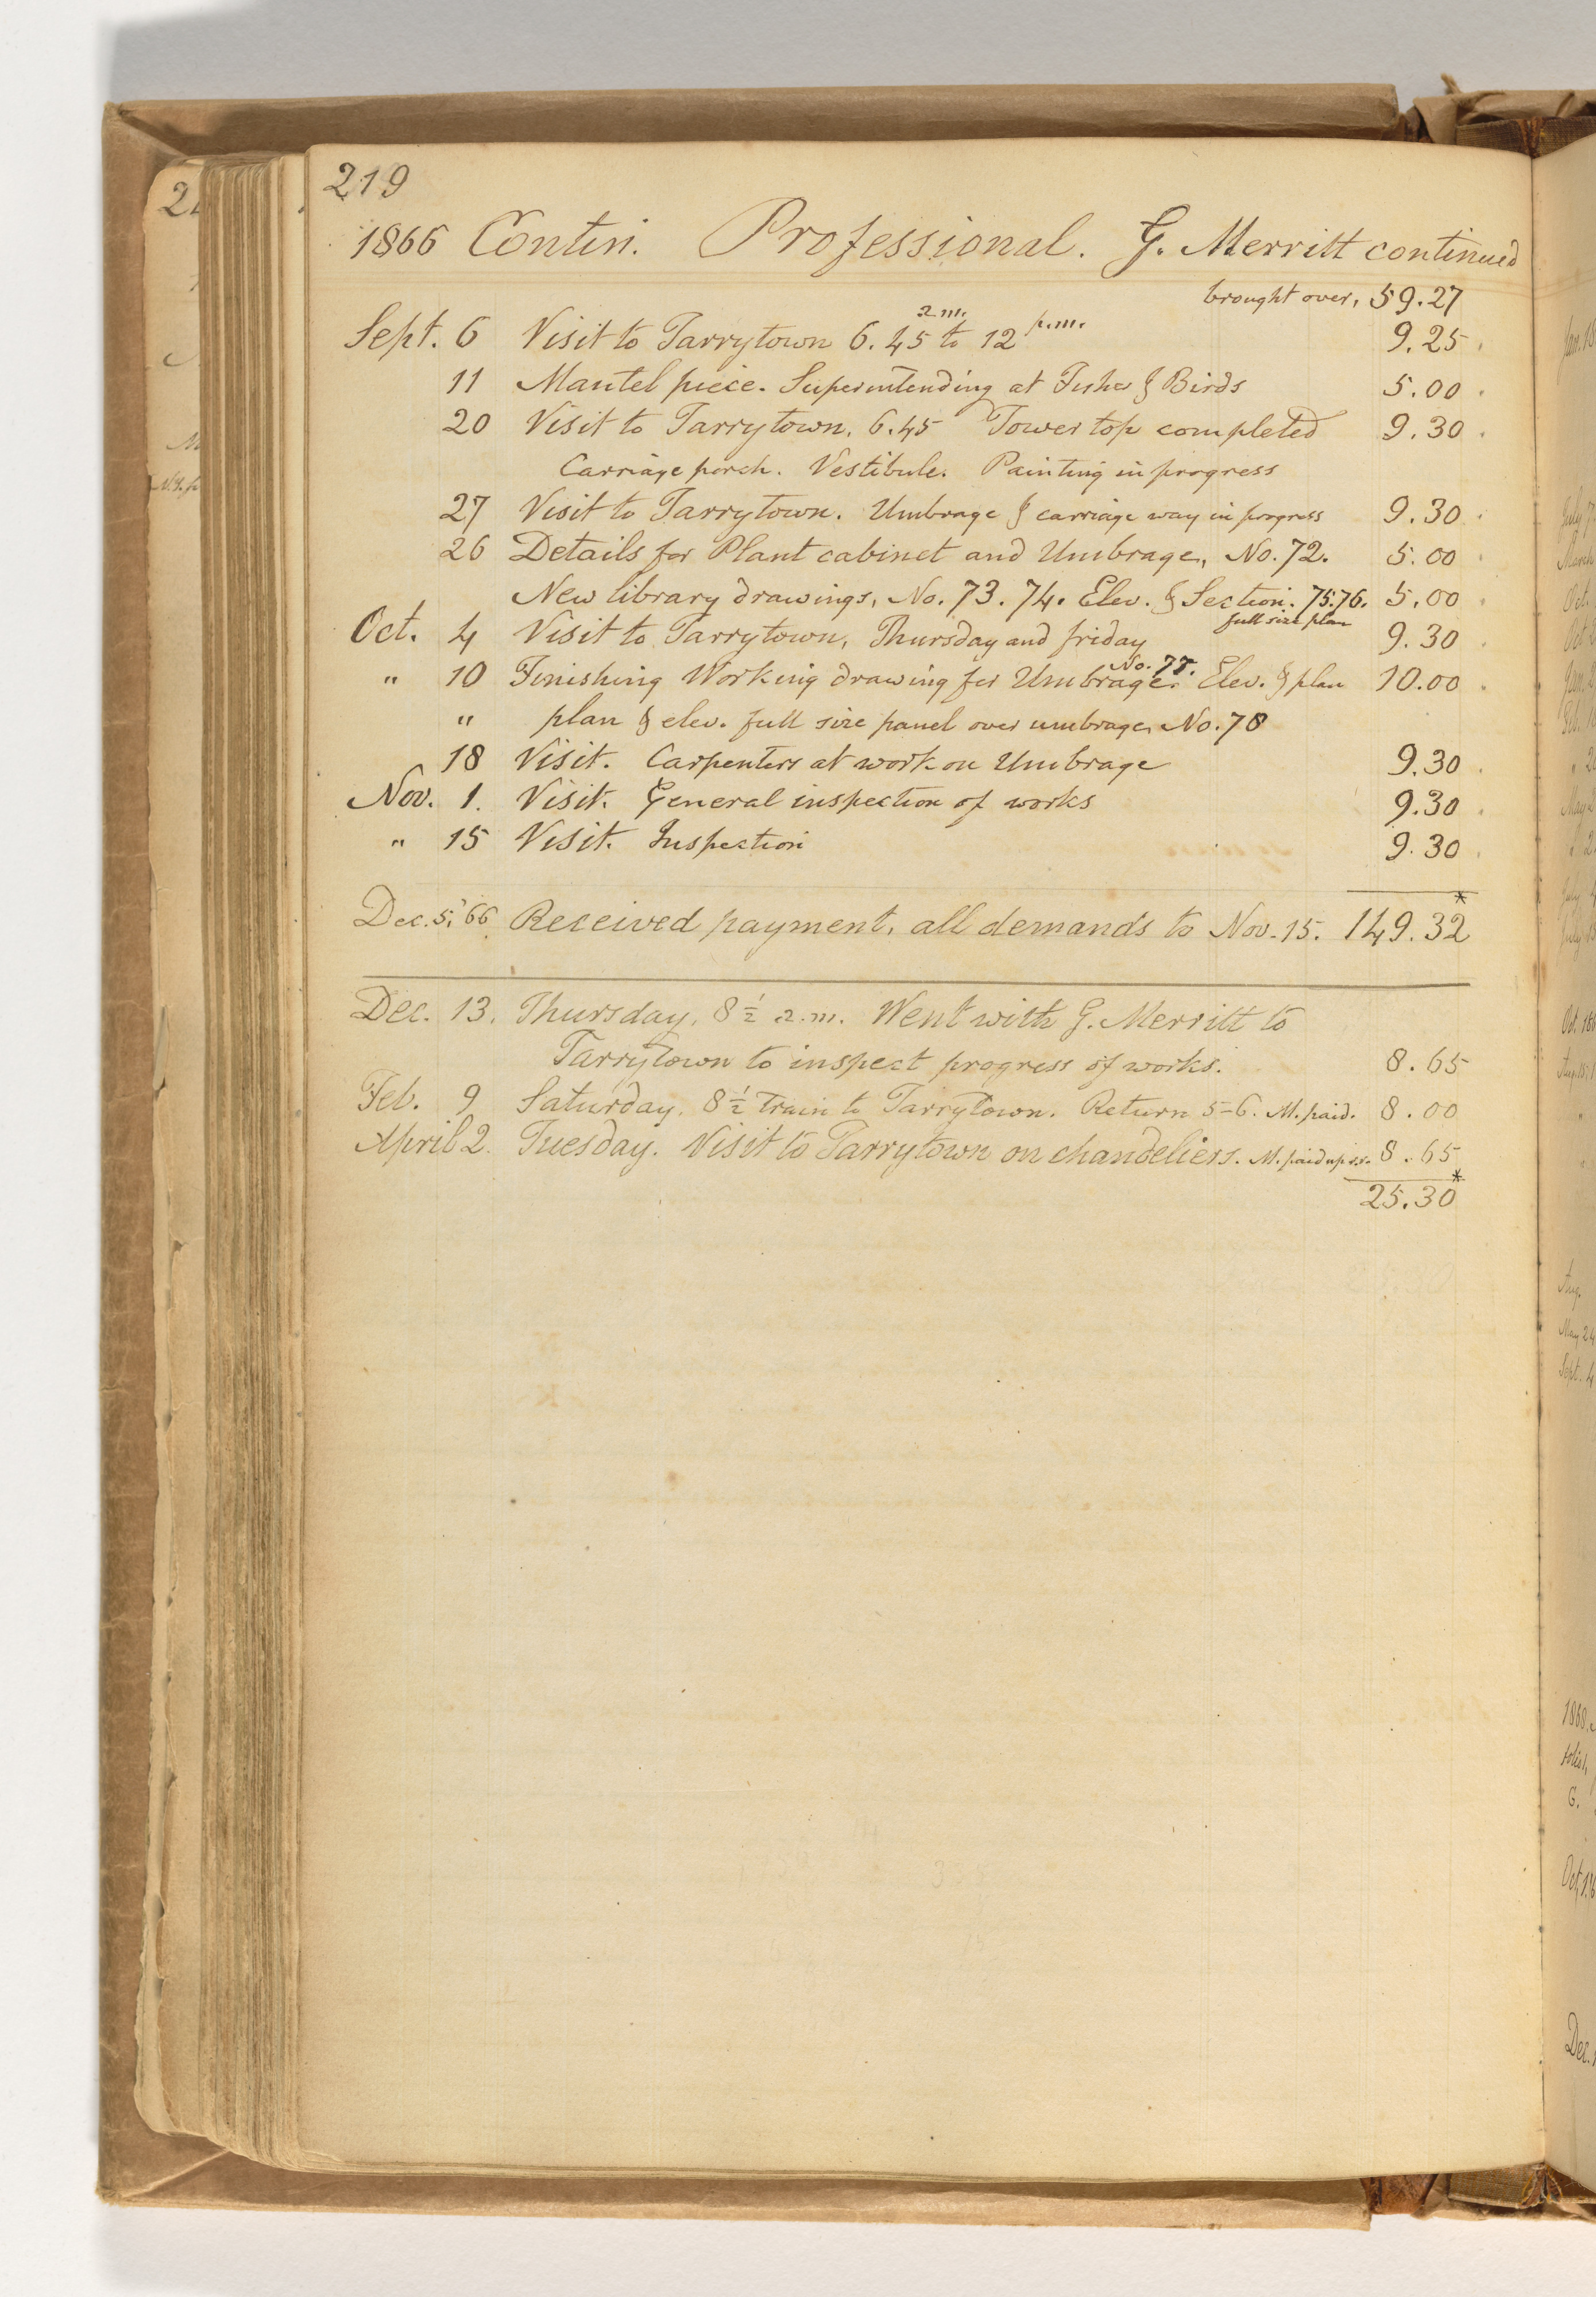 219
1866 Contin. Professional. G. Merritt continued
brought over, 59.27
Sept. 6 Visit to Tarrytown 6.45 a.m. to 12 p.m. 9.25
11 Mantel piece. Superintending at Fisher & Birds 5.00
20 Visit to Tarrytown. 6.45 Tower top completed 9.30
Carriage porch. Vestibule. Painting in progress
27 Visit to Tarrytown. Umbrage & carriage way in progress 9.30
26 Details for Plant cabinet and Umbrage, No. 72. 5.00
New library drawings, No. 73. 74. Elev. & Section. 75.76. 5.00
full size plan
Oct. 4 Visit to Tarrytown, Thursday and friday 9.30
" 10 Finishing Working drawing for Umbrage. No. 77. Elev. & plan 10.00
" plan & elev. full size panel over umbrage, No. 78
18 Visit. Carpenters at work on Umbrage 9.30
Nov. 1. Visit. General inspection of works 9.30
" 15 Visit. Inspection 9.30
Dec. 5, '66 Received payment, all demands to Nov. 15. 149.32*
Dec. 13. Thursday, 8½ a.m. Went with G. Merritt to
Tarrytown to inspect progress of works. 8.65
Feb. 9 Saturday. 8½ train to Tarrytown. Return 5-6. M. paid. 8.00
April 2. Tuesday. Visit to Tarrytown on chandeliers. M. paid up 8.65
25.30*